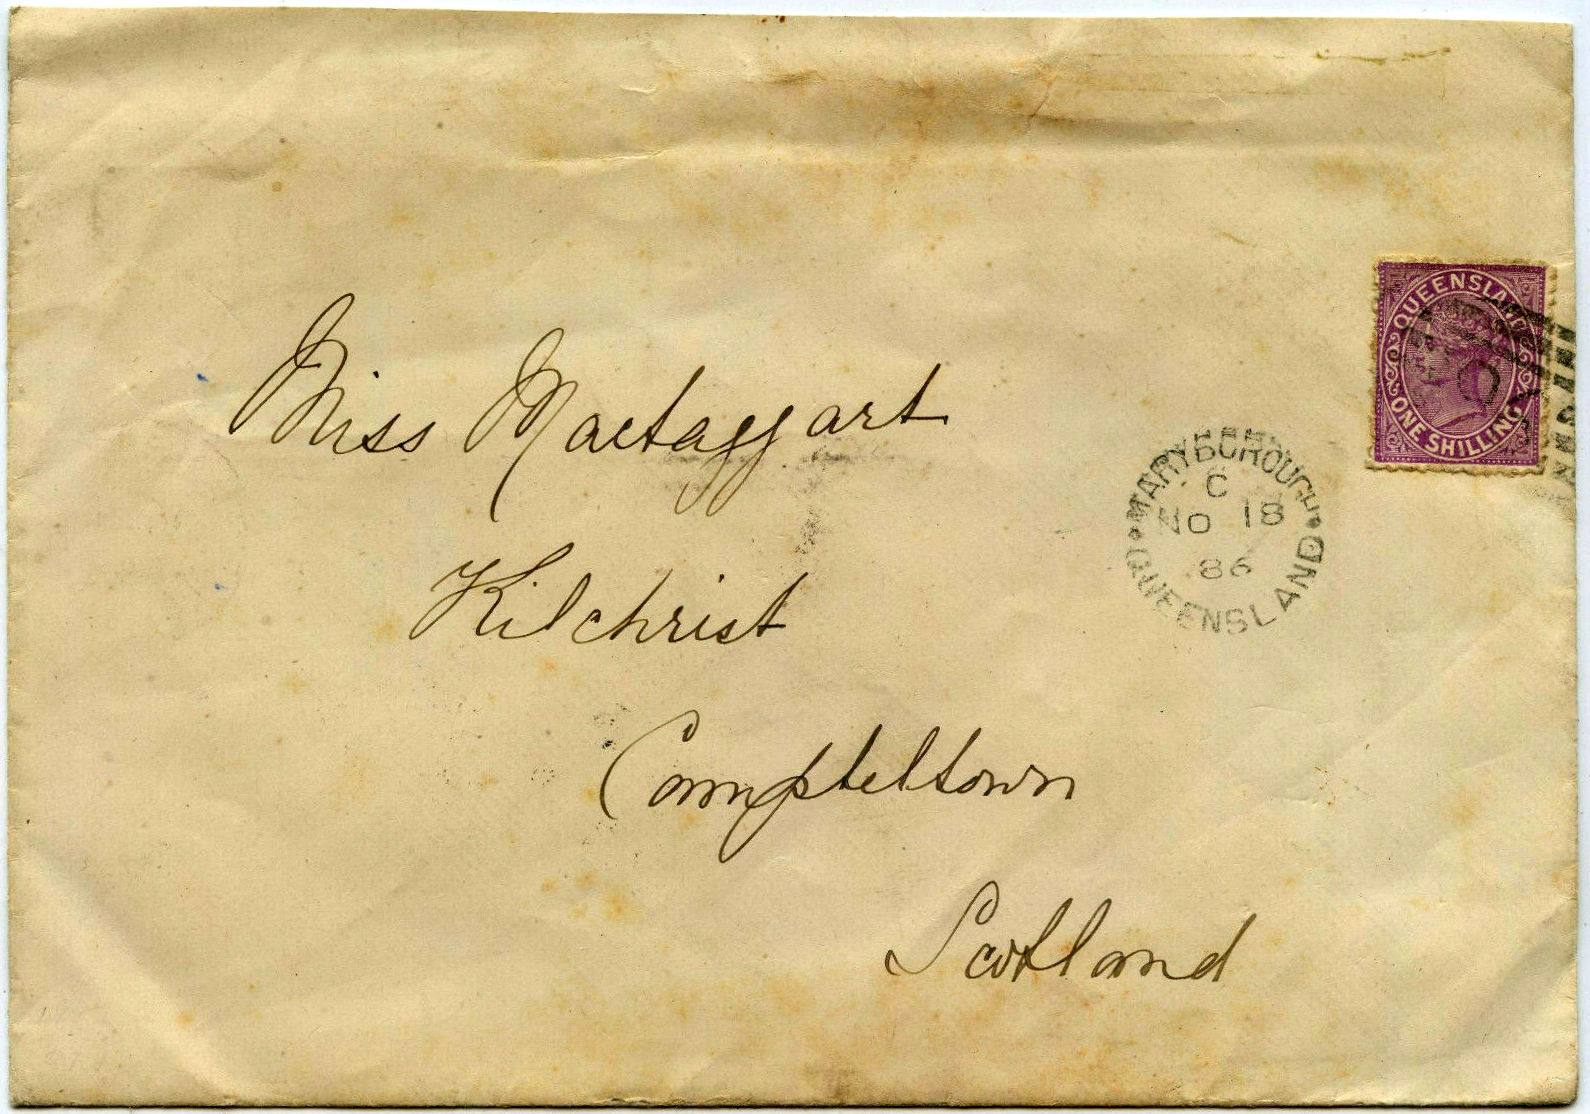 QUEENSLAND
ONE SHILLING
Miss Mactaggart
MARYBOROUGH
C
NO 18
86
QUEENSLAND
Kilchrist
Campbeltown
Scotland